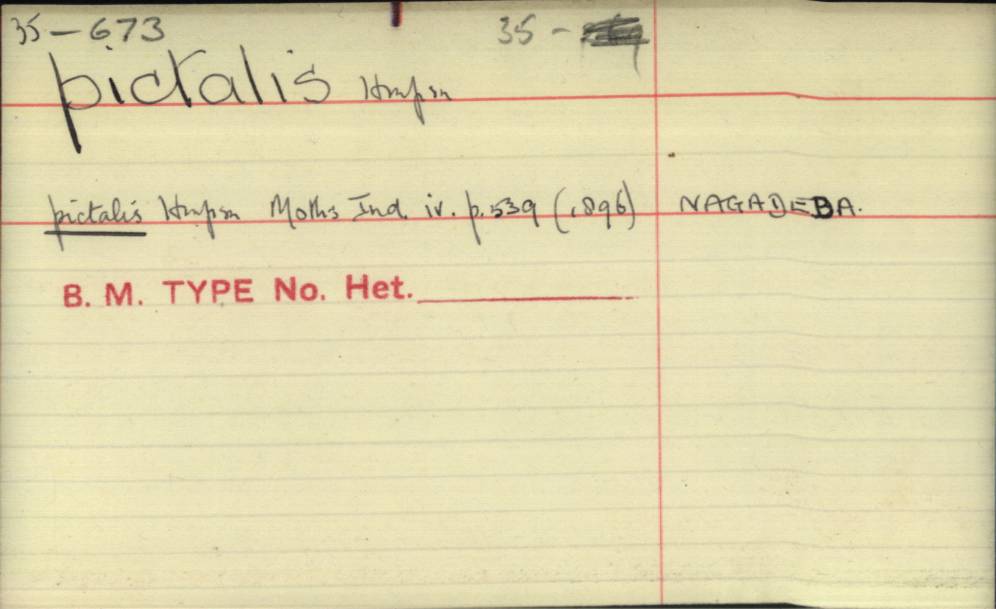 35-673 35-
pictalis Hmpsn
pictalis Hmpsn Moths Ind. iv. p. 539 (1896) NAGADEBA.
B. M. TYPE No. Het.